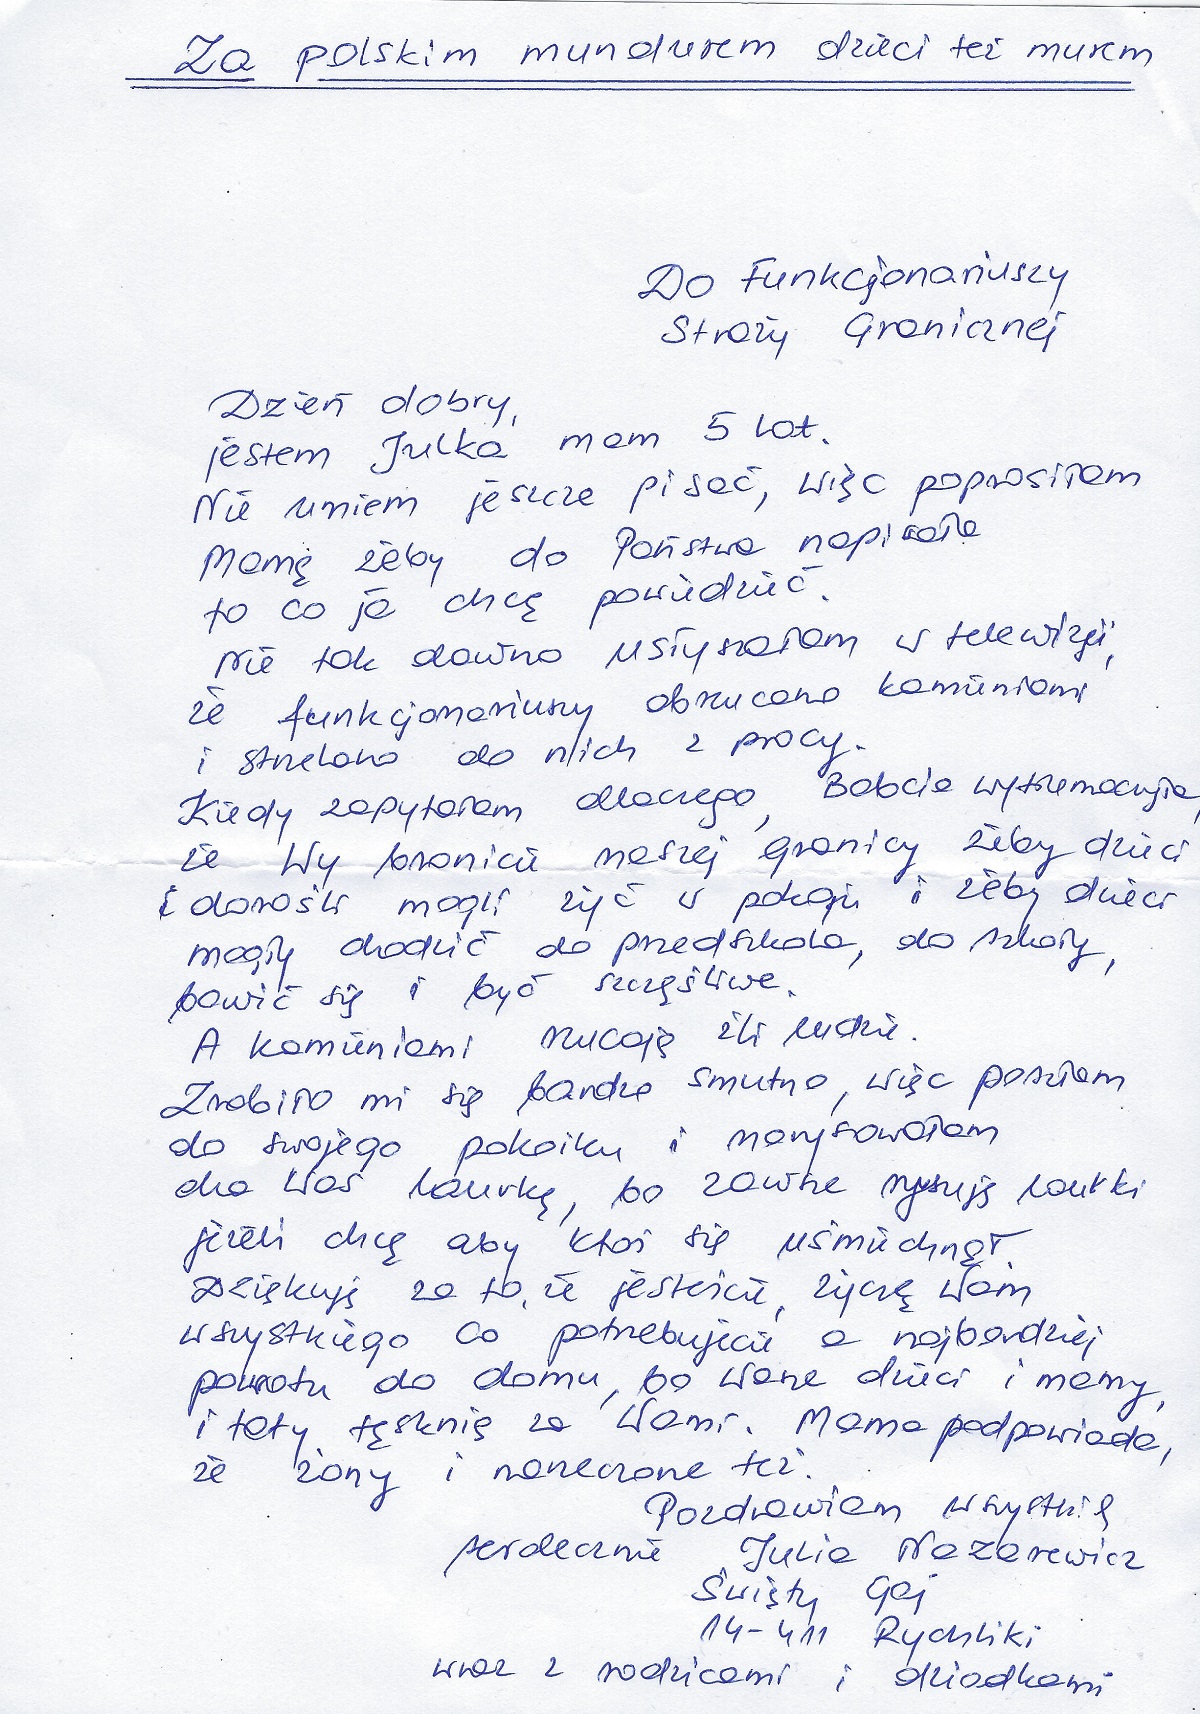 Za polskim mundurem dzieci też murem
Do Funkcjonariuszy
Straży Granicznej
Dzień dobry,
jestem Julka mam 5 lat.
Nie umiem jeszcze pisać, więc poprosiłam
Mamę żeby do Państwa napisała
to co ja chcę powiedzieć.
Nie tak dawno usłyszałam w telewizji,
że funkcjonariuszy obrzucano kamieniami
i strzelano do nich z procy.
Kiedy zapytałam dlaczego, Babcia wytłumaczyła,
że Wy bronicie naszej granicy żeby dzieci
i dorośli mogli żyć w pokoju i żeby dzieci
mogły chodzić do przedszkola, do szkoły,
bawić się i być szczęśliwe.
A kamieniami rzucają źli ludzie.
Zrobiło mi się bardzo smutno, więc poszłam
do swojego pokoiku i narysowałam
dla Was laurkę, bo zawsze rysuję laurki
jeżeli chcę aby ktoś się uśmiechnął.
Dziękuję za to, że jesteście, życzę Wam
wszystkiego co potrzebujecie a najbardziej
powrotu do domu, bo Wasze dzieci i mamy,
i taty tęsknią za Wami. Mama podpowiada,
że żony i narzeczone też.
Pozdrawiam wszystkię
serdecznie Julia Nazarewicz
Święty Gaj
14-411 Rychliki
wraz z rodzicami i dziadkami